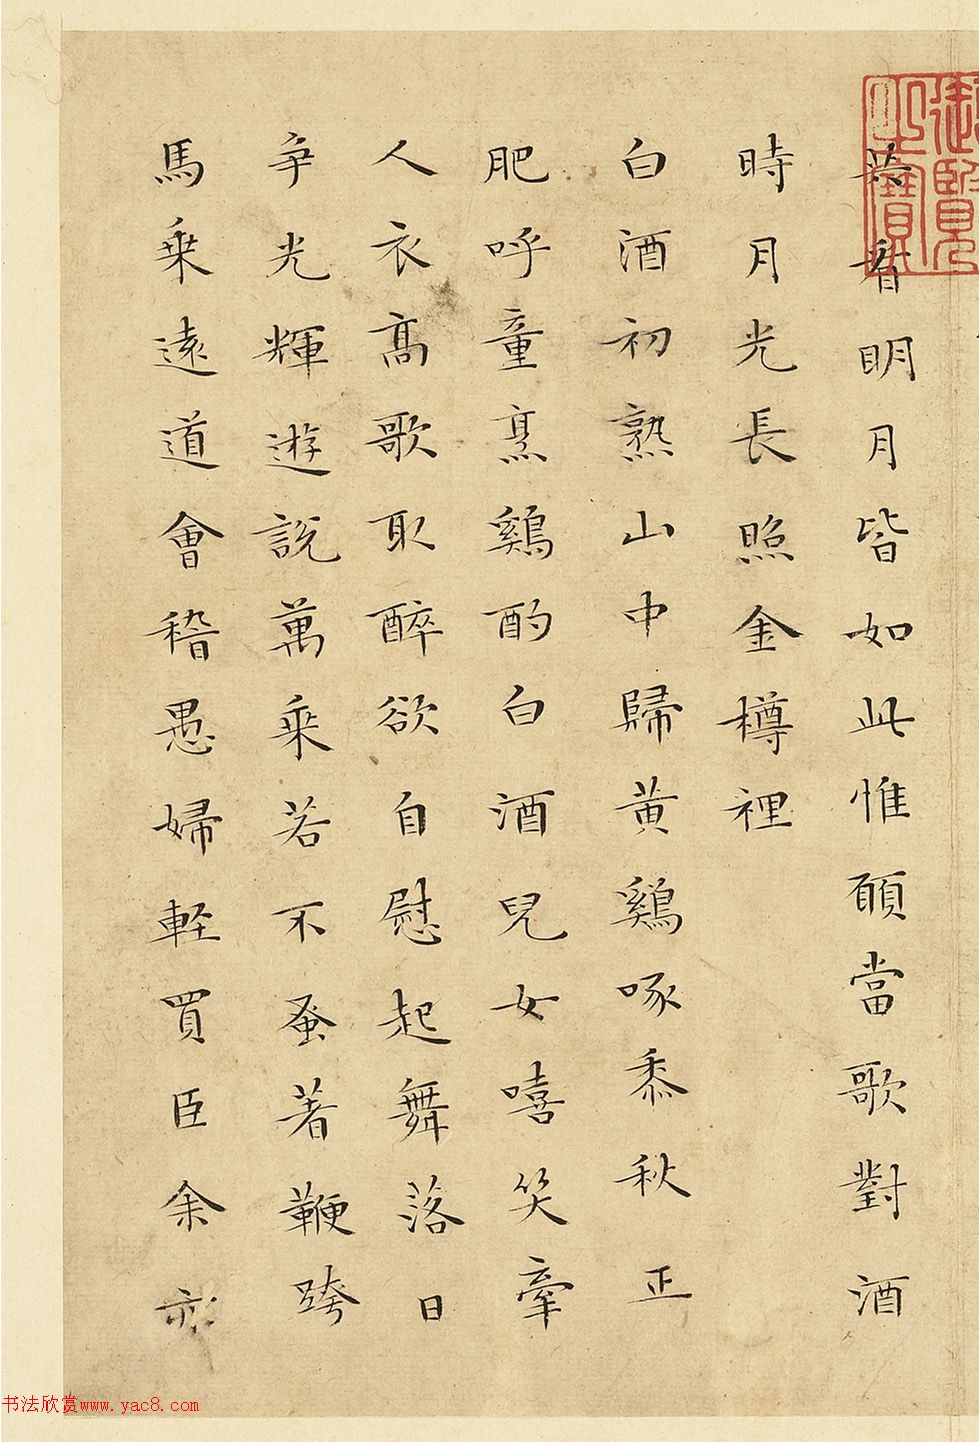 共看明月皆如此惟願當歌對酒
時月光長照金樽裡
白酒初熟山中歸黄鷄啄黍秋正
肥呼童烹鷄酌白酒兒女嘻笑牽
人衣高歌取醉欲自慰起舞落日
争光輝遊說萬乗若不蚤著鞭跨
馬乗遠道會稽愚婦輕買臣余亦
御覽之寶
书法欣赏www.yac8.com